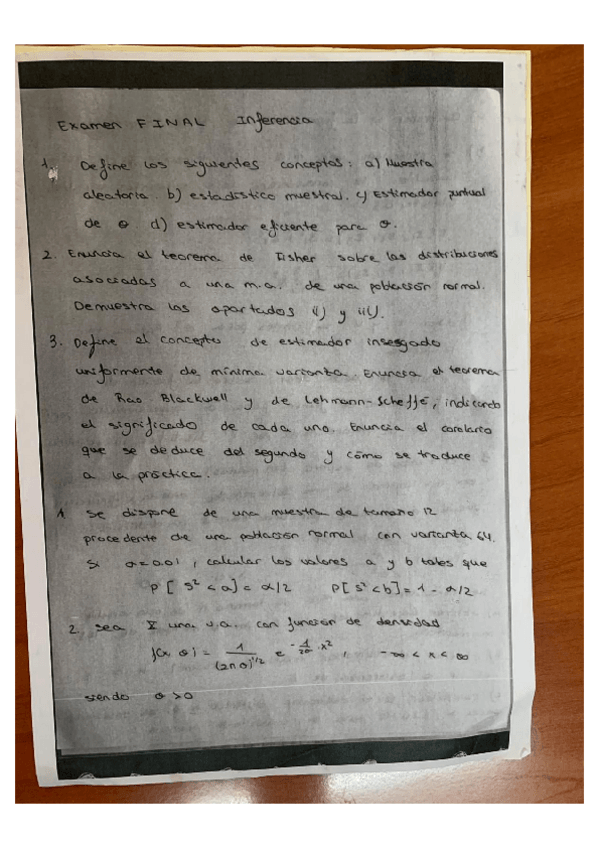 Examen FINAL Inferencia
1. Define los siguientes conceptos: a) Muestra
aleatoria b) estadístico muestral. c) Estimador puntual
de θ. d) estimador eficiente para θ.
2. Enuncia el teorema de Fisher sobre las distribuciones
asociadas a una m.a. de una población normal.
Demuestra los apartados i) y iii).
3. Define el concepto de estimador insesgado
uniformente de mínima varianza. Enuncia el teorema
de Rao Blackwell y de Lehmann-Scheffé, indicando
el significado de cada uno. Enuncia el corolario
que se deduce del segundo y cómo se traduce
a la práctica.
1. Se dispone de una muestra de tamaño 12
procedente de una población normal con varianza 64.
Si α=0.01, calcular los valores a y b tales que
P[S²<a]=α/2 P[S²<b]=1-α/2
2. Sea X una v.a. con función de densidad
f(x, θ) = 1/(2πθ)^1/2 e^-1/2θ·x², -∞<x<∞
siendo θ>0